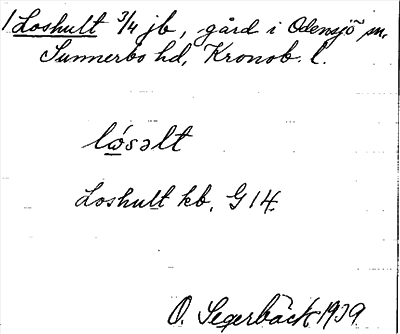 1 Loshult 3/4 jb, gård i Odensjö sn,
Sunnerbo hd, Kronob. l.
lǿsəlt
Loshult kb, G 14.
O. Segerbäck 1939